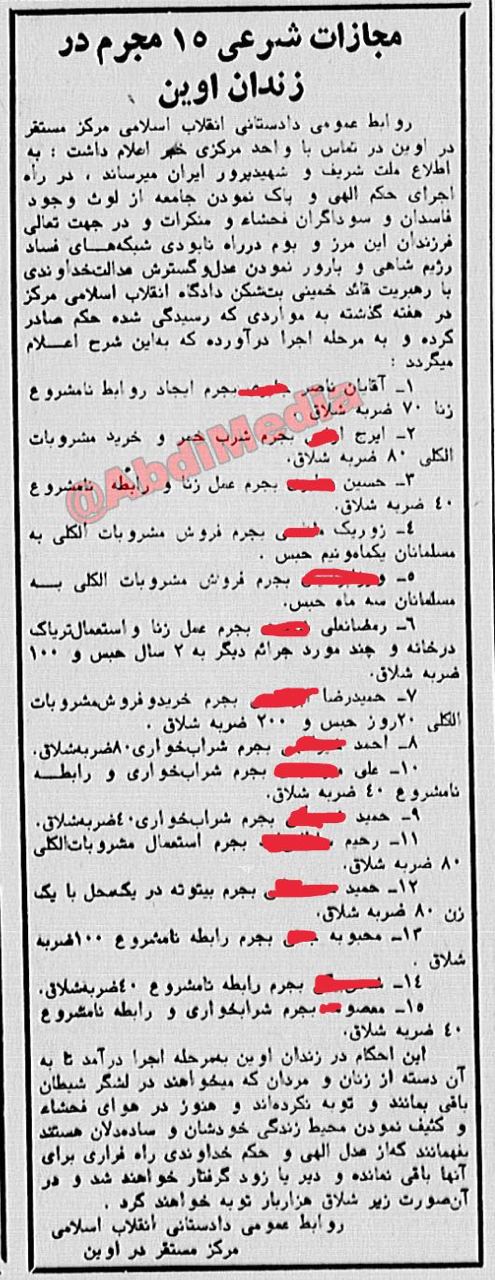 مجازات شرعی ۱۵ مجرم در
زندان اوین
روابط عمومی دادستانی انقلاب اسلامی مرکز مستقر
در اوین در تماس با واحد مرکزی خبر اعلام داشت : به
اطلاع ملت شریف و شهیدپرور ایران میرساند ، در راه
اجرای حکم الهی و پاک نمودن جامعه از لوث وجود
فاسدان و سوداگران فحشاء و منکرات و در جهت تعالی
فرزندان این مرز و بوم درراه نابودی شبکه‌های فساد
رژیم شاهی و بارور نمودن عدل‌وگسترش عدالت‌خداوندی
با رهبریت قائد خمینی بت‌شکن دادگاه انقلاب اسلامی مرکز
در هفته گذشته به مواردی که رسیدگی شده حکم صادر
کرده و به مرحله اجرا درآورده که به‌این شرح اعلام
میگردد :
۱ـ آقایان ناصر بجرم ایجاد روابط نامشروع
زنا ۷۰ ضربه شلاق.
۲ـ ایرج بجرم شرب خمر و خرید مشروبات
الکلی ۸۰ ضربه شلاق.
۳ـ حسین بجرم عمل زنا و رابطه نامشروع
۴۰ ضربه شلاق.
۴ـ زوریک بجرم فروش مشروبات الکلی به
مسلمانان یکماه‌ونیم حبس .
۵ـ بجرم فروش مشروبات الکلی به
مسلمانان سه ماه حبس.
۶ـ رمضانعلی بجرم عمل زنا و استعمال‌تریاک
درخانه و چند مورد جرائم دیگر به ۲ سال حبس و ۱۰۰
ضربه شلاق.
۷ـ حمیدرضا بجرم خریدوفروش‌مشروبات
الکلی ۲۰روز حبس و ۲۰۰ ضربه شلاق .
۸ـ احمد بجرم شراب‌خواری۸۰ضربه‌شلاق.
۱۰ـ علی بجرم شراب‌خواری و رابطه
نامشروع ۴۰ ضربه شلاق.
۹ـ حمید بجرم شراب‌خواری۴۰ضربه‌شلاق.
۱۱ـ رحیم بجرم استعمال مشروبات‌الکلی
۸۰ ضربه شلاق.
۱۲ـ حمید بجرم بیتوته در یک‌محل با یک
زن ۸۰ ضربه شلاق.
۱۳ـ محبوبه بجرم رابطه نامشروع ۱۰۰ضربه
شلاق .
۱۴ـ بجرم رابطه نامشروع ۴۰ضربه‌شلاق.
۱۵ـ بجرم شرابخواری و رابطه نامشروع
۴۰ ضربه شلاق.
این احکام در زندان اوین به‌مرحله اجرا درآمد تا به
آن دسته از زنان و مردان که میخواهند در لشگر شیطان
باقی بمانند و توبه نکرده‌اند و هنوز در هوای فحشاء
و کثیف نمودن محیط زندگی خودشان و ساده‌دلان هستند
بفهمانند که‌از عدل الهی و حکم خداوندی راه فراری برای
آنها باقی نمانده و دیر یا زود گرفتار خواهند شد و در
آن‌صورت زیر شلاق هزاربار توبه خواهند کرد .
روابط عمومی دادستانی انقلاب اسلامی
مرکز مستقر در اوین
@AbdiMedia